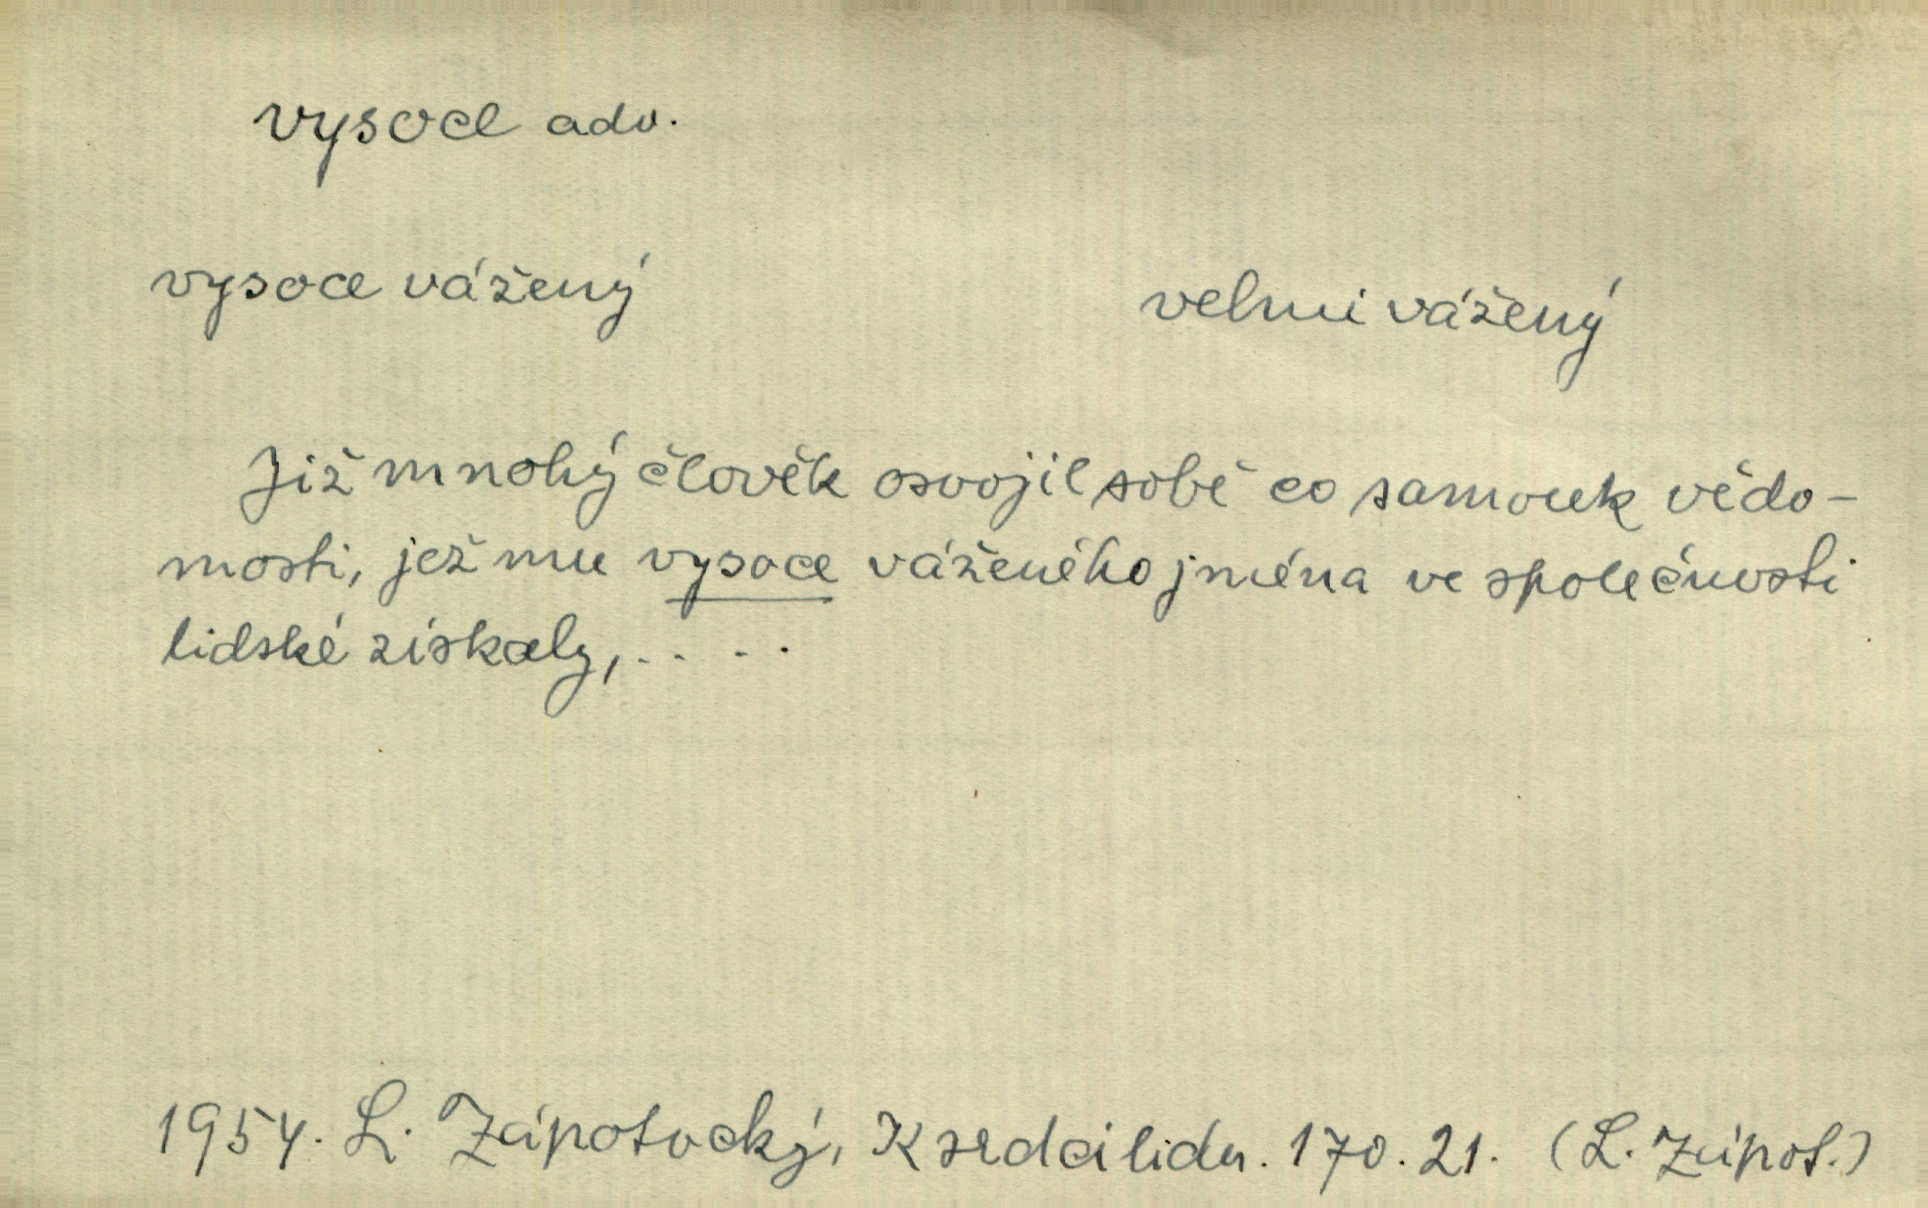 vysoce adv.
vysoce vážený
velmi vážený
Již mnohý člověk osvojil sobě co samouk vědo-
mosti, jež mu vysoce váženého jména ve společnosti
lidské získaly,....
1954. L. Zápotocký, K srdci lidu. 170. 21. (L. Zápot.)